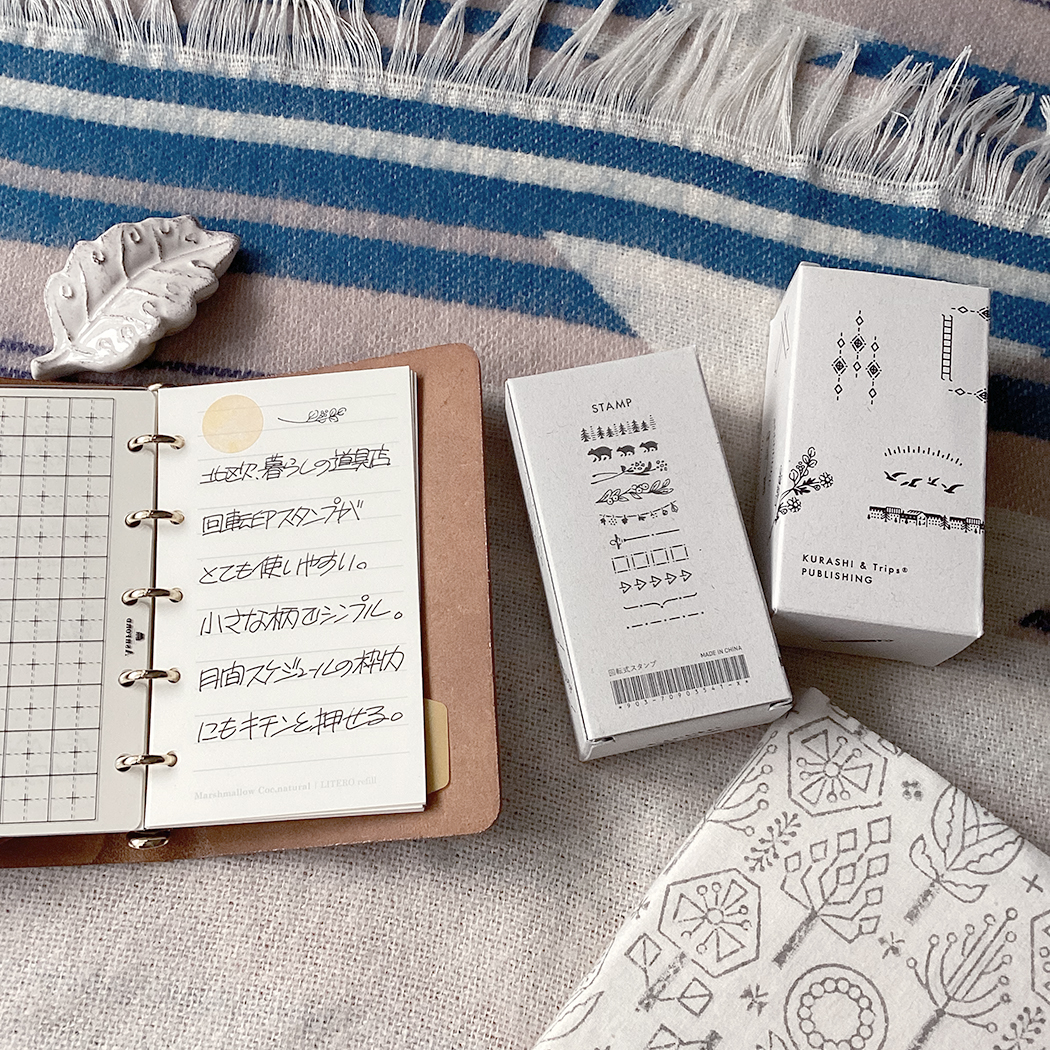 北欧、暮らしの道具店
回転印スタンプが
とても使いやすい。
小さな柄でシンプル。
月間スケジュールの枠内
にもキチンと押せる。
Marshmallow Coc.natural | LITERO refill
STAMP
MADE IN CHINA
回転式スタンプ
KURASHI & Trips®
PUBLISHING